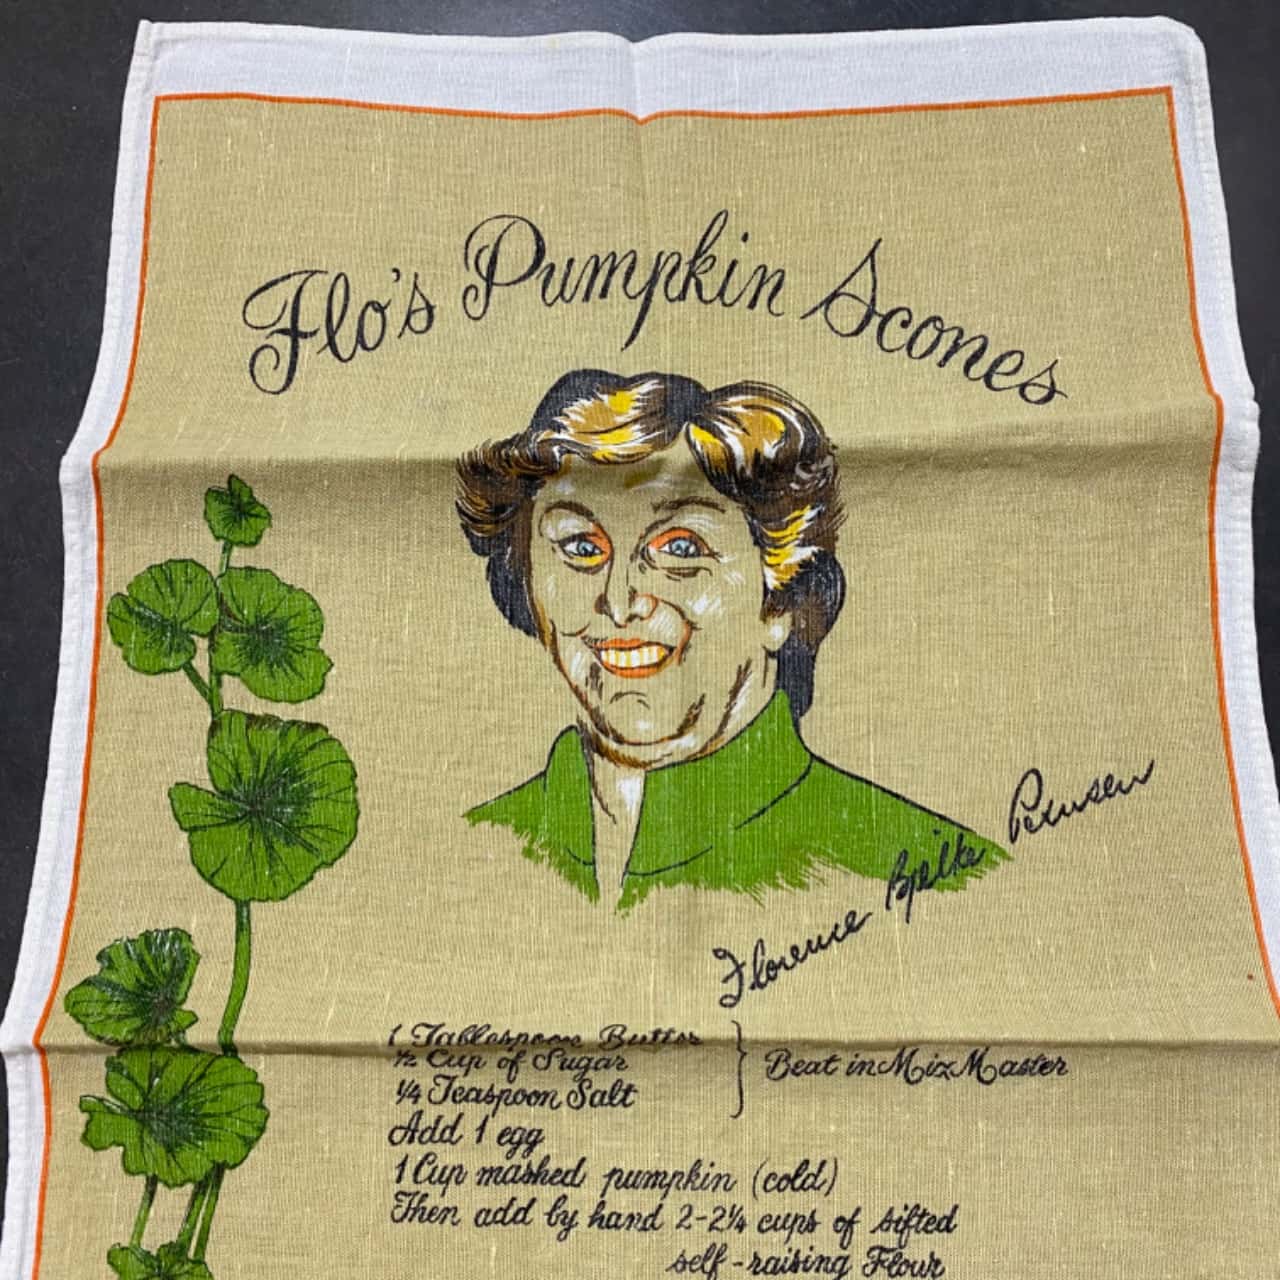 Flo's Pumpkin Scones
Florence Bjelke Petersen
1 Tablespoon Butter
½ Cup of Sugar
¼ Teaspoon Salt
} Beat in MixMaster
Add 1 egg
1 Cup mashed pumpkin (cold)
Then add by hand 2-2¼ cups of sifted
self-raising Flour